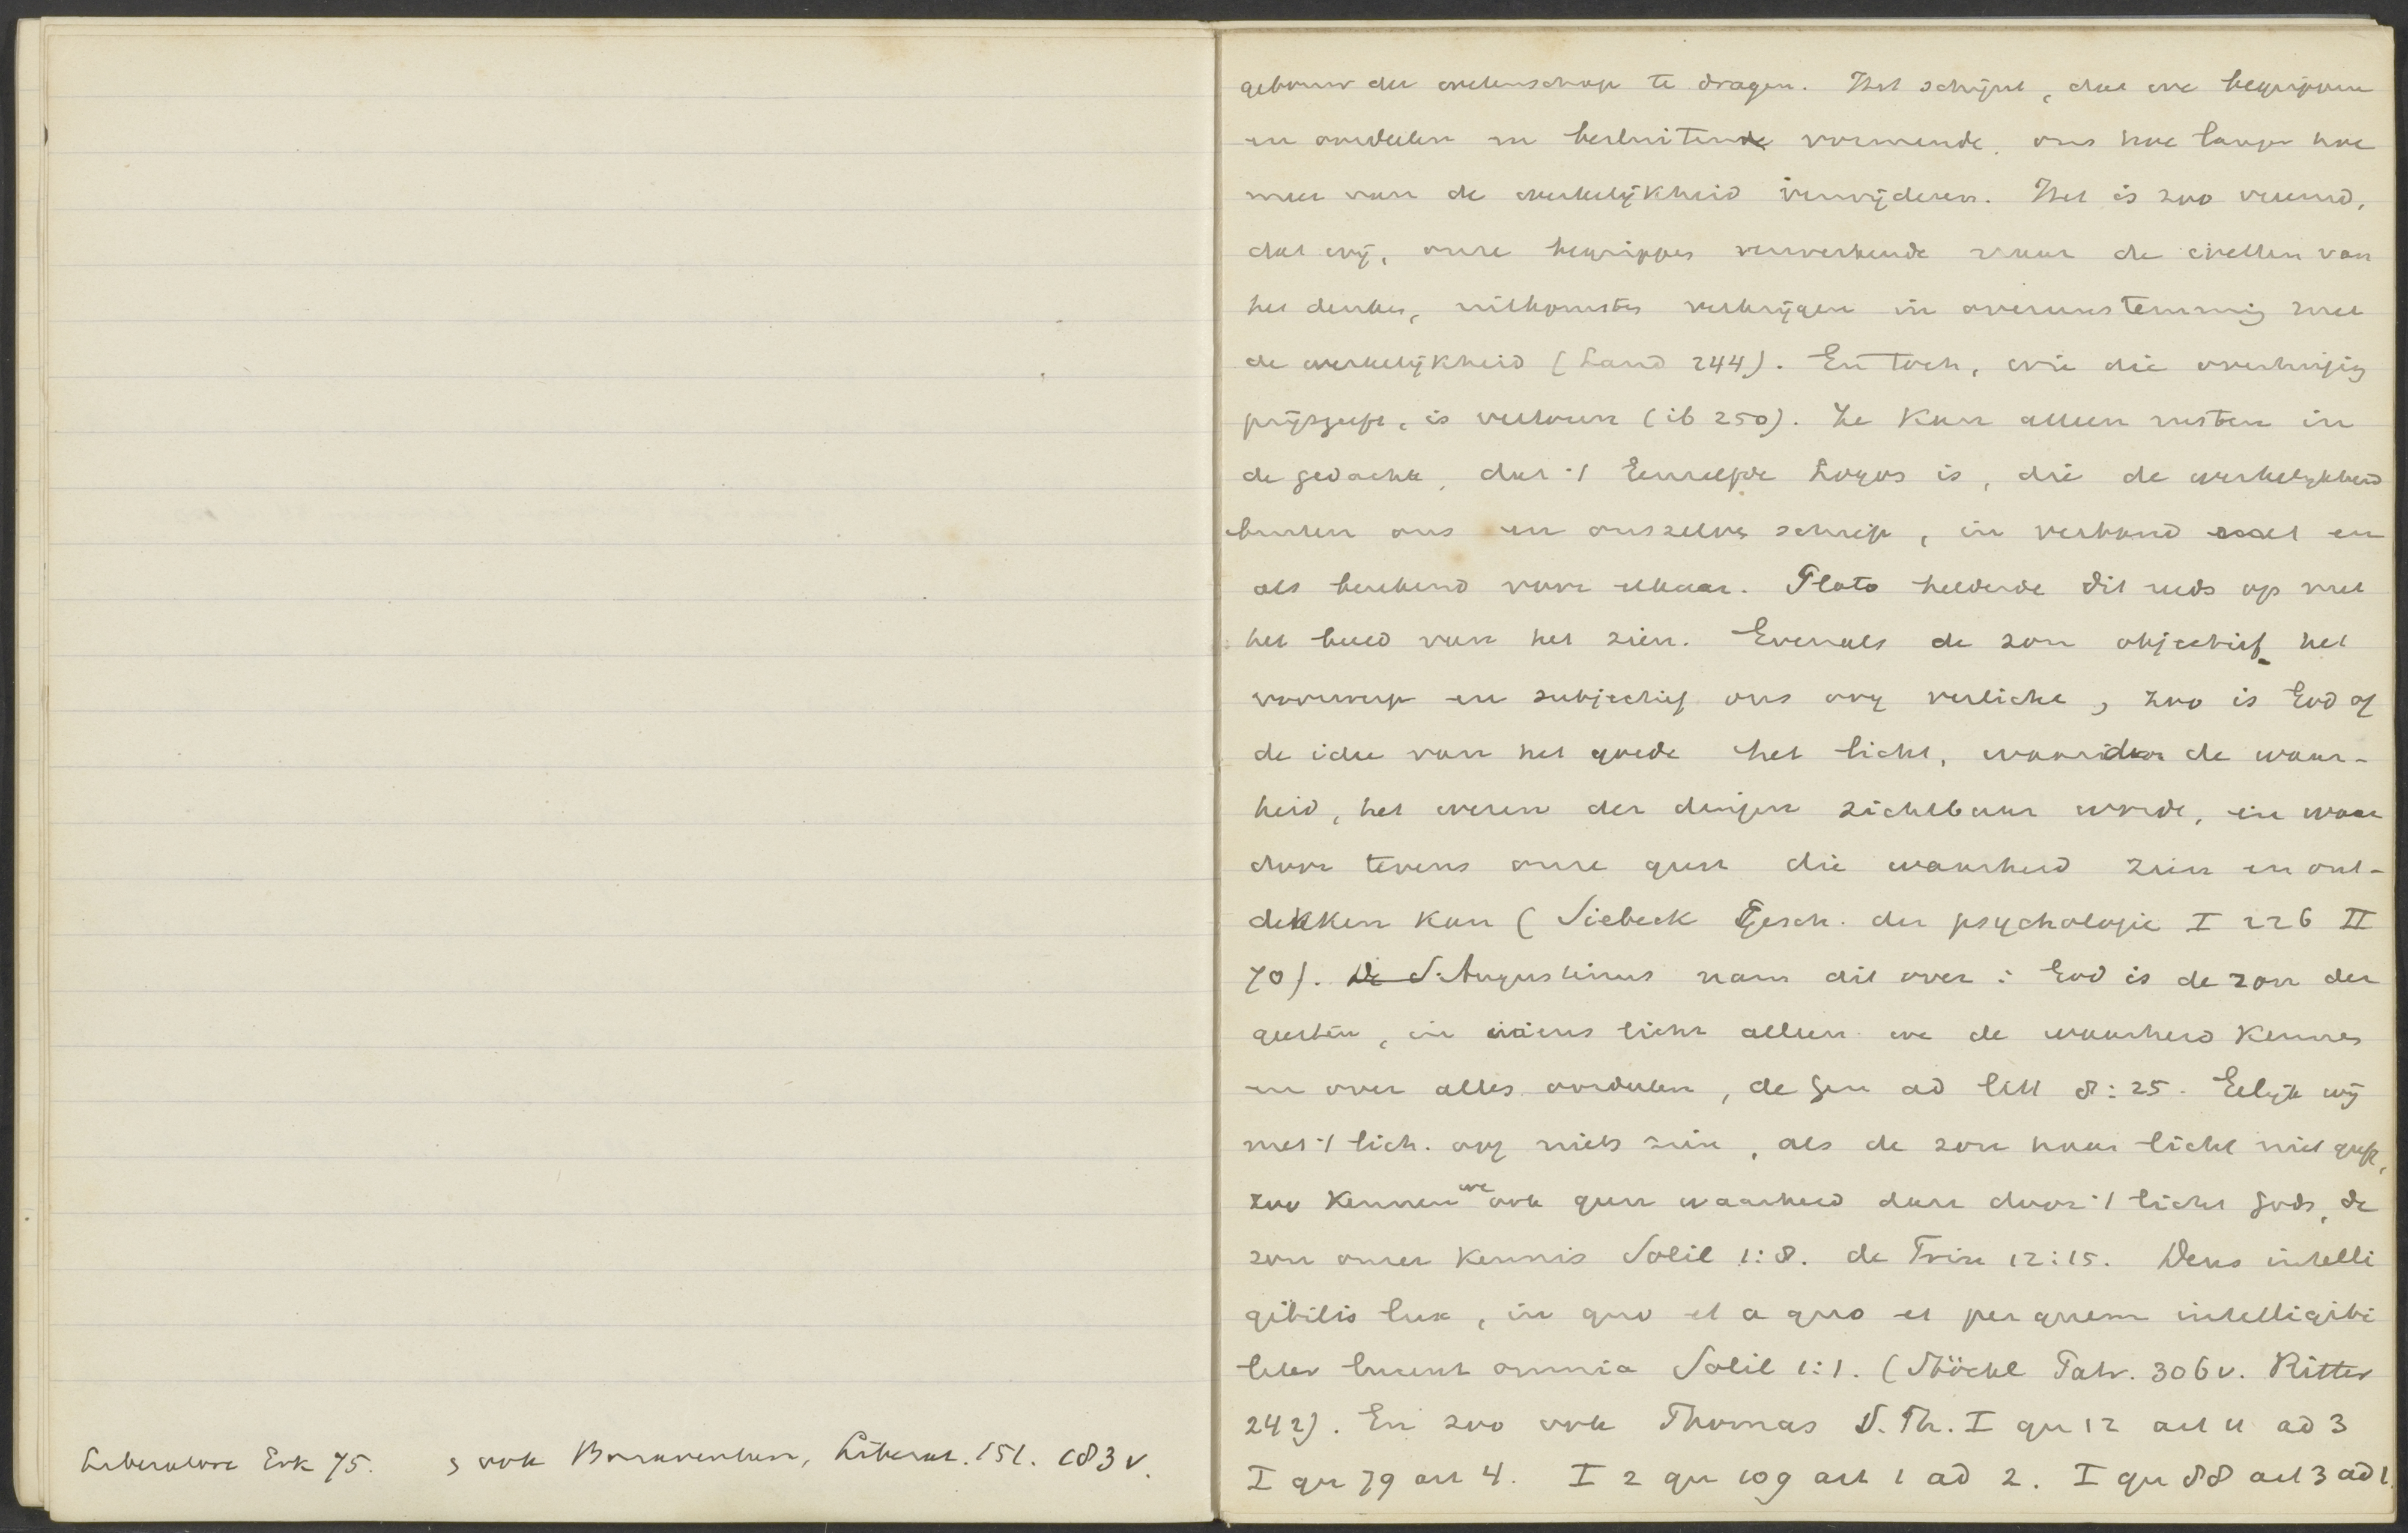 Liberatore Erk 75. zook Bonaventura, Liberat. 151. 183 v.
gebouw der wetenschap te dragen. Het schijnt, dat we begrippen
en oordeelen en besluitende vormende, ons hoe langer hoe
meer van de werkelijkheid verwijderen. Het is zoo vreemd,
dat wij, onze begrippen verwerkende naar de wetten van
het denken, uitkomsten verkrijgen in overeenstemming met
de werkelijkheid (Land 244). En toch, wie die overtuiging
prijsgeeft, is verloren (ib 250). Ze kan alleen rusten in
de gedachte, dat 't Eenzelfde Logos is, die de werkelijkheid
buiten ons en onszelven schiep, in verband met en
als berekend voor elkaar. Plato helderde dit reeds op met
het beeld van het zien. Evenals de zon objectief het
voorwerp en subjectief ons oog verlicht, zoo is God of
de idee van het goede het licht, waardoor de waar-
heid, het wezen der dingen zichtbaar wordt, en waar
door tevens onze geest die waarheid zien en ont-
dekken kan (Siebeck Gesch. der psychologie I 226 II
70). S. Augustinus nam dit over: God is de zon der
geesten, in wiens licht alleen we de waarheid kennen
en over alles oordeelen, de Gen ad litt 8:25. Gelijk wij
met 't lich. oog niets zien, als de zon haar licht niet geeft,
zoo kennen we ook geen waarheid dan door 't licht Gods, de
zon onzer kennis Solil 1:8. de Trin 12:15. Deus intelli
gibilis lux, in quo et a quo et per quem intelligibi
liter lucent omnia Solil 1:1. (Stöckl Patr. 306 v. Ritter
242). En zoo ook Thomas S. Th. I qu 12 art 11 ad 3
I qu 79 art 4. I 2 qu 109 art 1 ad 2. I qu 88 art 3 ad 1.